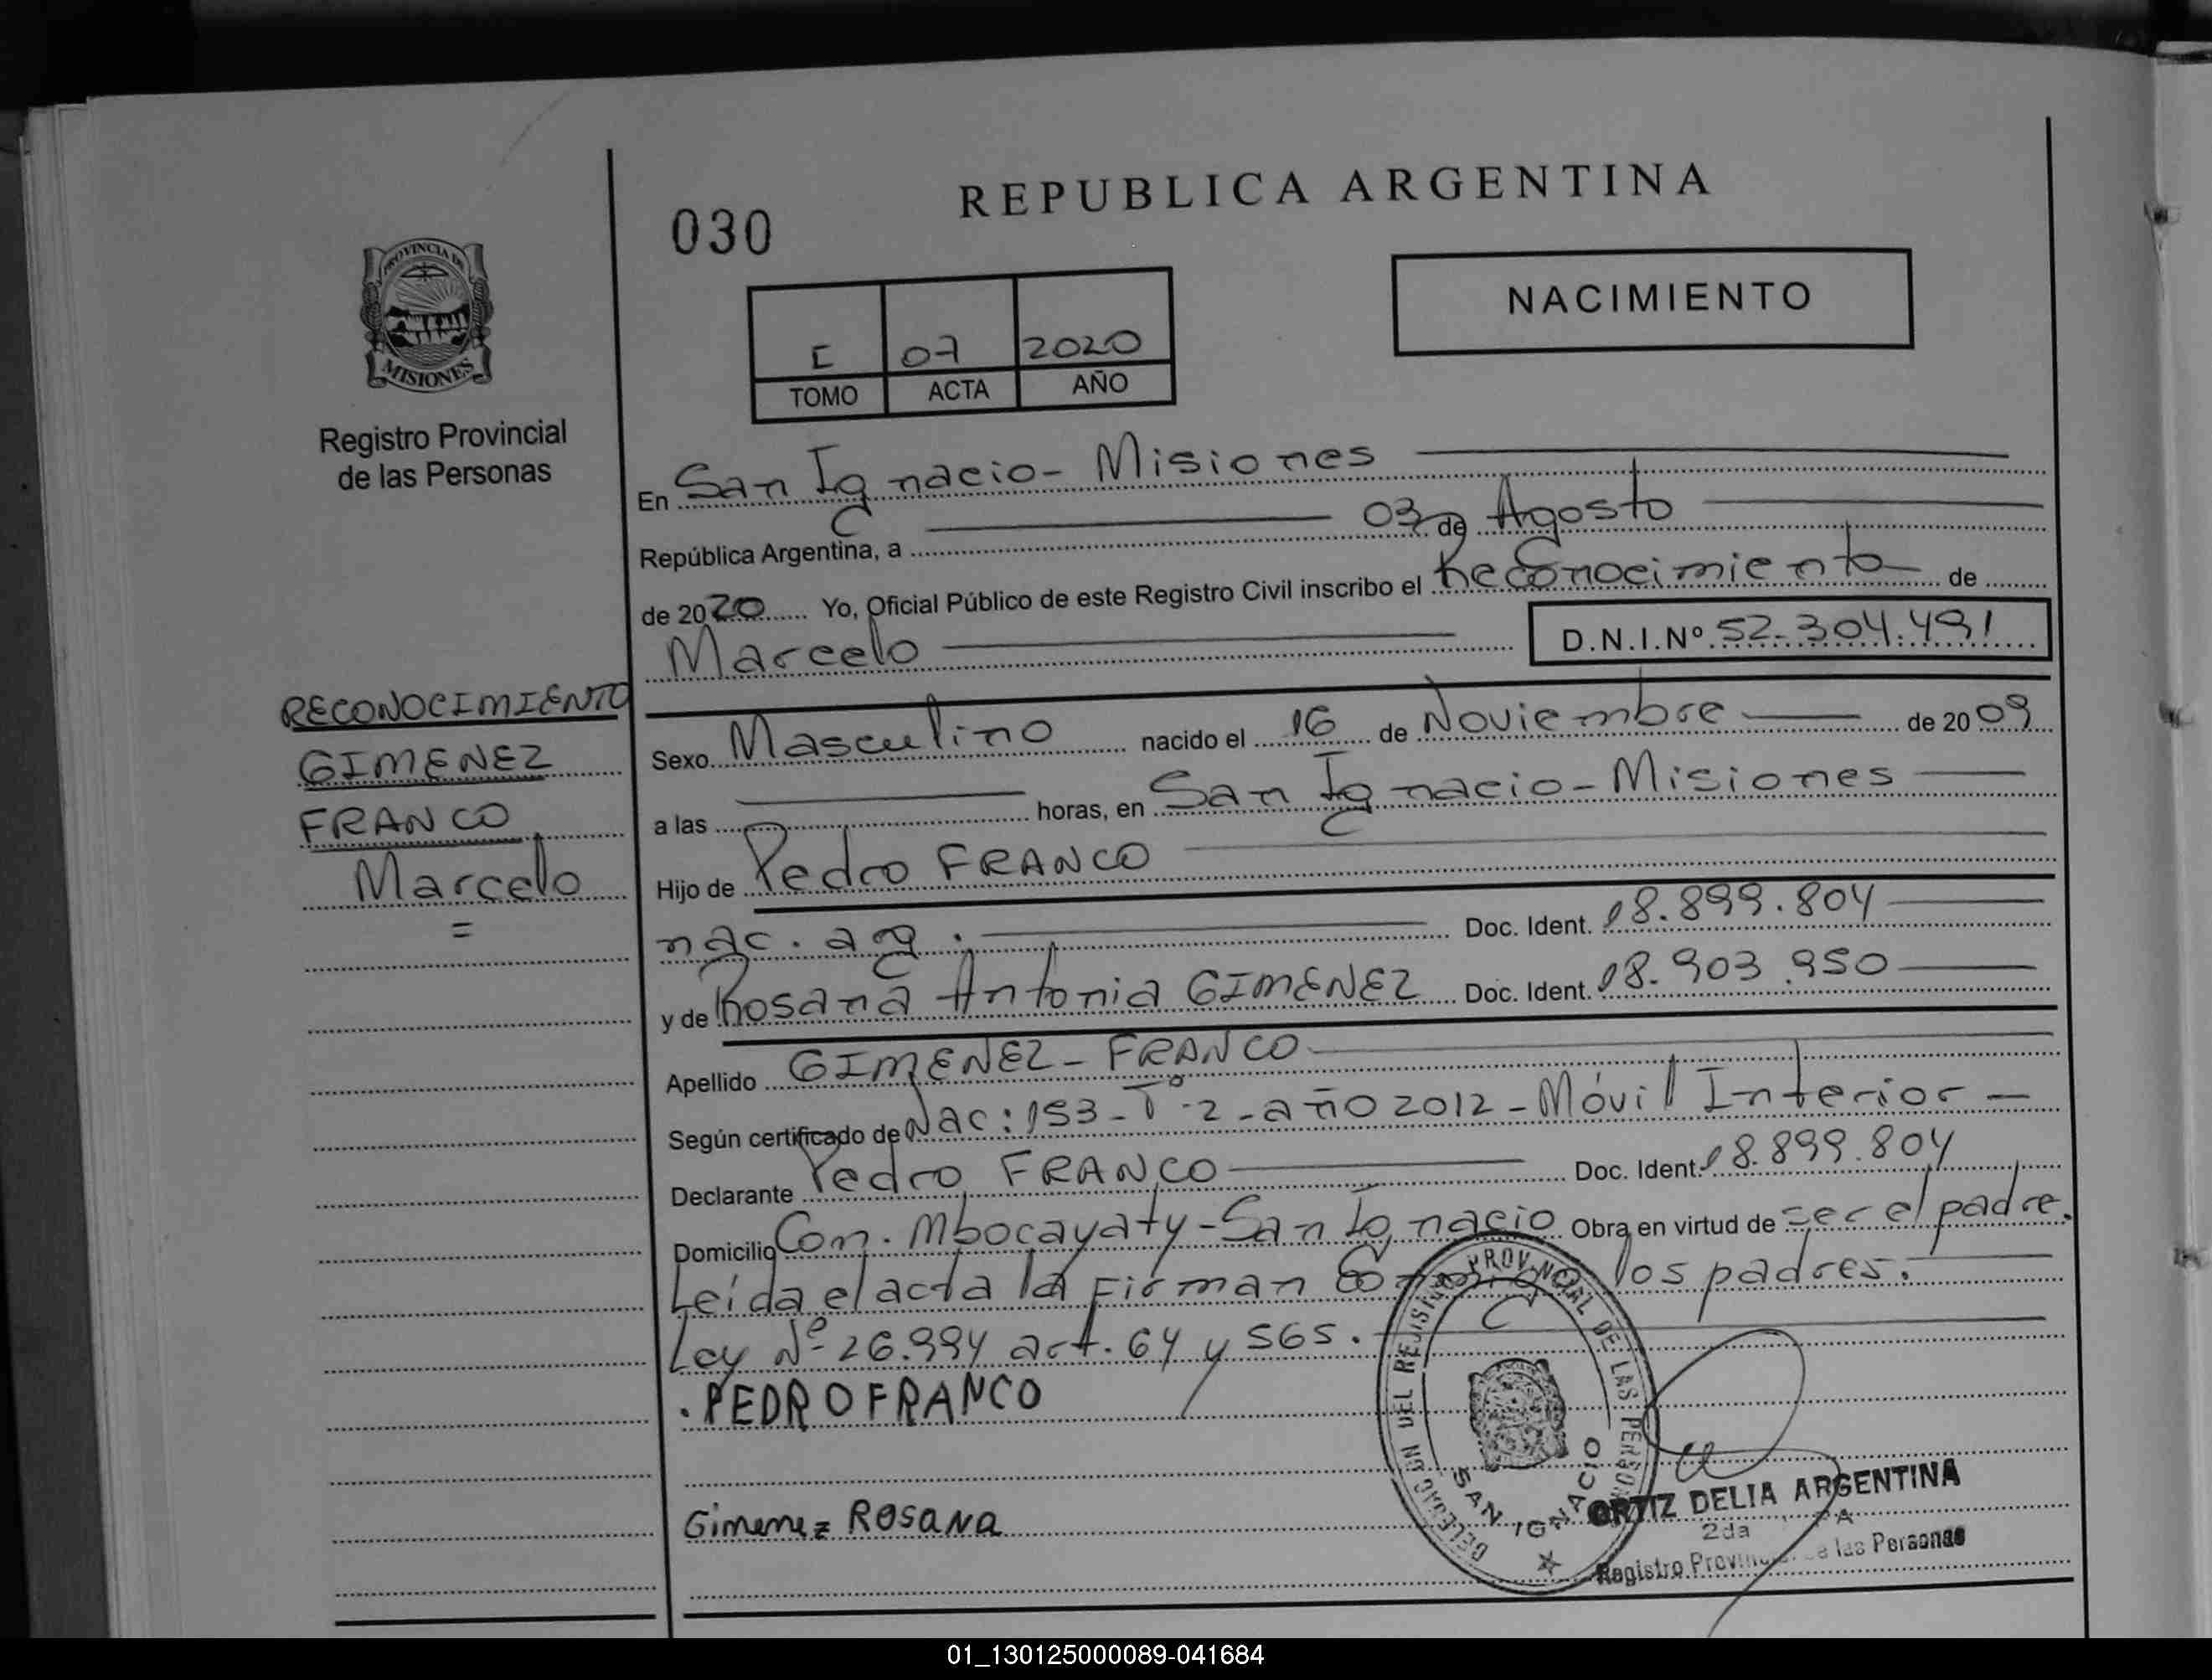 REPUBLICA ARGENTINA
030
NACIMIENTO
PROVINCIA DE
MISIONES
I 07 2020
TOMO ACTA AÑO
Registro Provincial
de las Personas
En San Ignacio - Misiones
República Argentina, a 03 de Agosto
de 2020 Yo, Oficial Público de este Registro Civil inscribo el Reconocimiento de
Marcelo D.N.I.Nº 52.304.491
RECONOCIMIENTO
GIMENEZ
FRANCO
Marcelo
=
Sexo Masculino nacido el 16 de Noviembre de 2009
a las horas, en San Ignacio - Misiones
Hijo de Pedro FRANCO
nac. arg. Doc. Ident. 18.899.804
y de Rosana Antonia GIMENEZ Doc. Ident. 18.903.950
Apellido GIMENEZ - FRANCO
Según certificado de Nac: 153 - Tº 2 - año 2012 - Móvil Interior -
Declarante Pedro FRANCO Doc. Ident. 18.899.804
Domicilio Com. Mbocayaty - San Ignacio Obra en virtud de ser el padre.
Leída el acta la Firman los padres.
Ley Nº 26.994 art. 64 y 565.
. PEDRO FRANCO
Gimenez ROSANA
DELEGACION DEL REJISTRO PROVINCIAL DE LAS PERSONAS
SAN IGNACIO
ORTIZ DELIA ARGENTINA
2da
Registro Provincial de las Personas
01_130125000089-041684